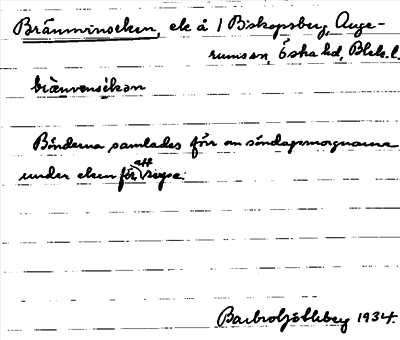 Brännvinseken, ek å 1 Biskopsberg, Auge-
rums sn, Östra hd, Blek. l.
brænvensékan
Bönderna samlades förr om söndagsmorgnarna
under eken för att supa.
1934.